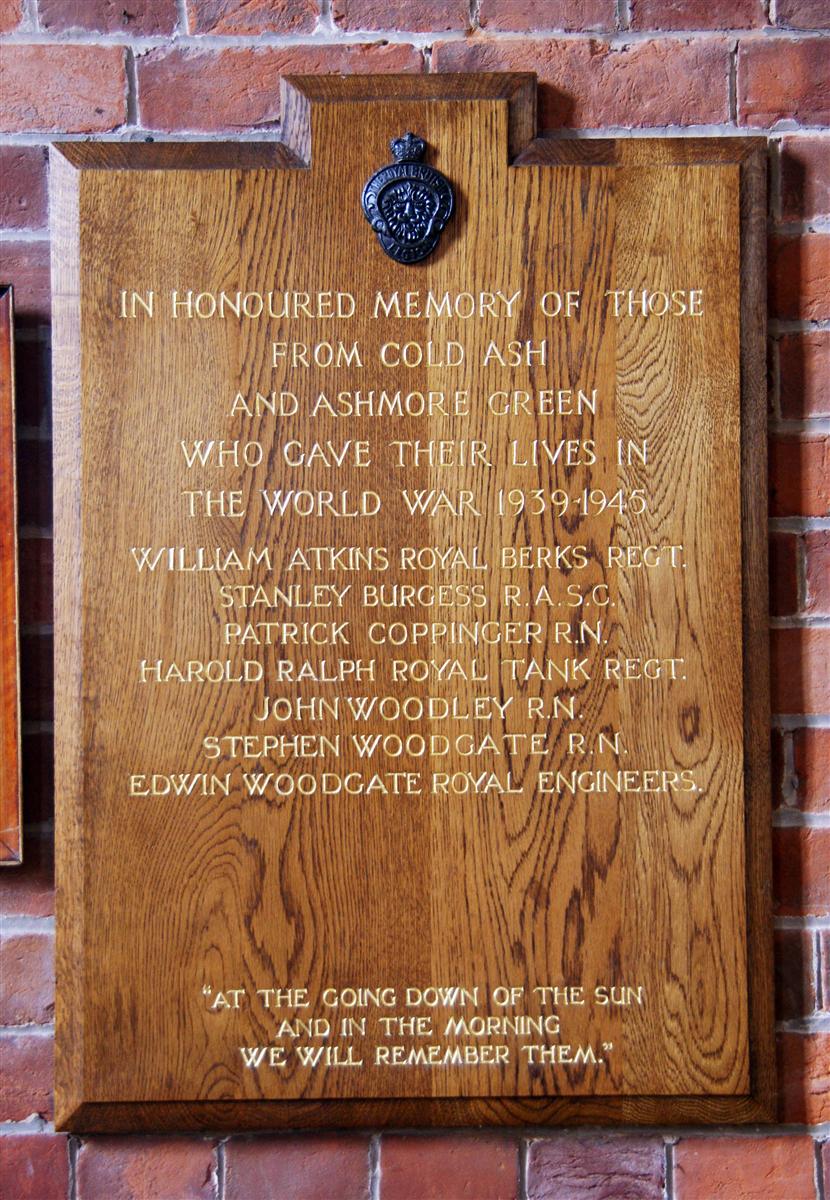 IN HONOURED MEMORY OF THOSE
FROM COLD ASH
AND ASHMORE GREEN
WHO GAVE THEIR LIVES IN
THE WORLD WAR 1939-1945
WILLIAM ATKINS ROYAL BERKS REGT.
STANLEY BURGESS R.A.S.C.
PATRICK COPPINGER R.N.
HAROLD RALPH ROYAL TANK REGT.
JOHN WOODLEY R.N.
STEPHEN WOODGATE R.N.
EDWIN WOODGATE ROYAL ENGINEERS.
"AT THE GOING DOWN OF THE SUN
AND IN THE MORNING
WE WILL REMEMBER THEM."